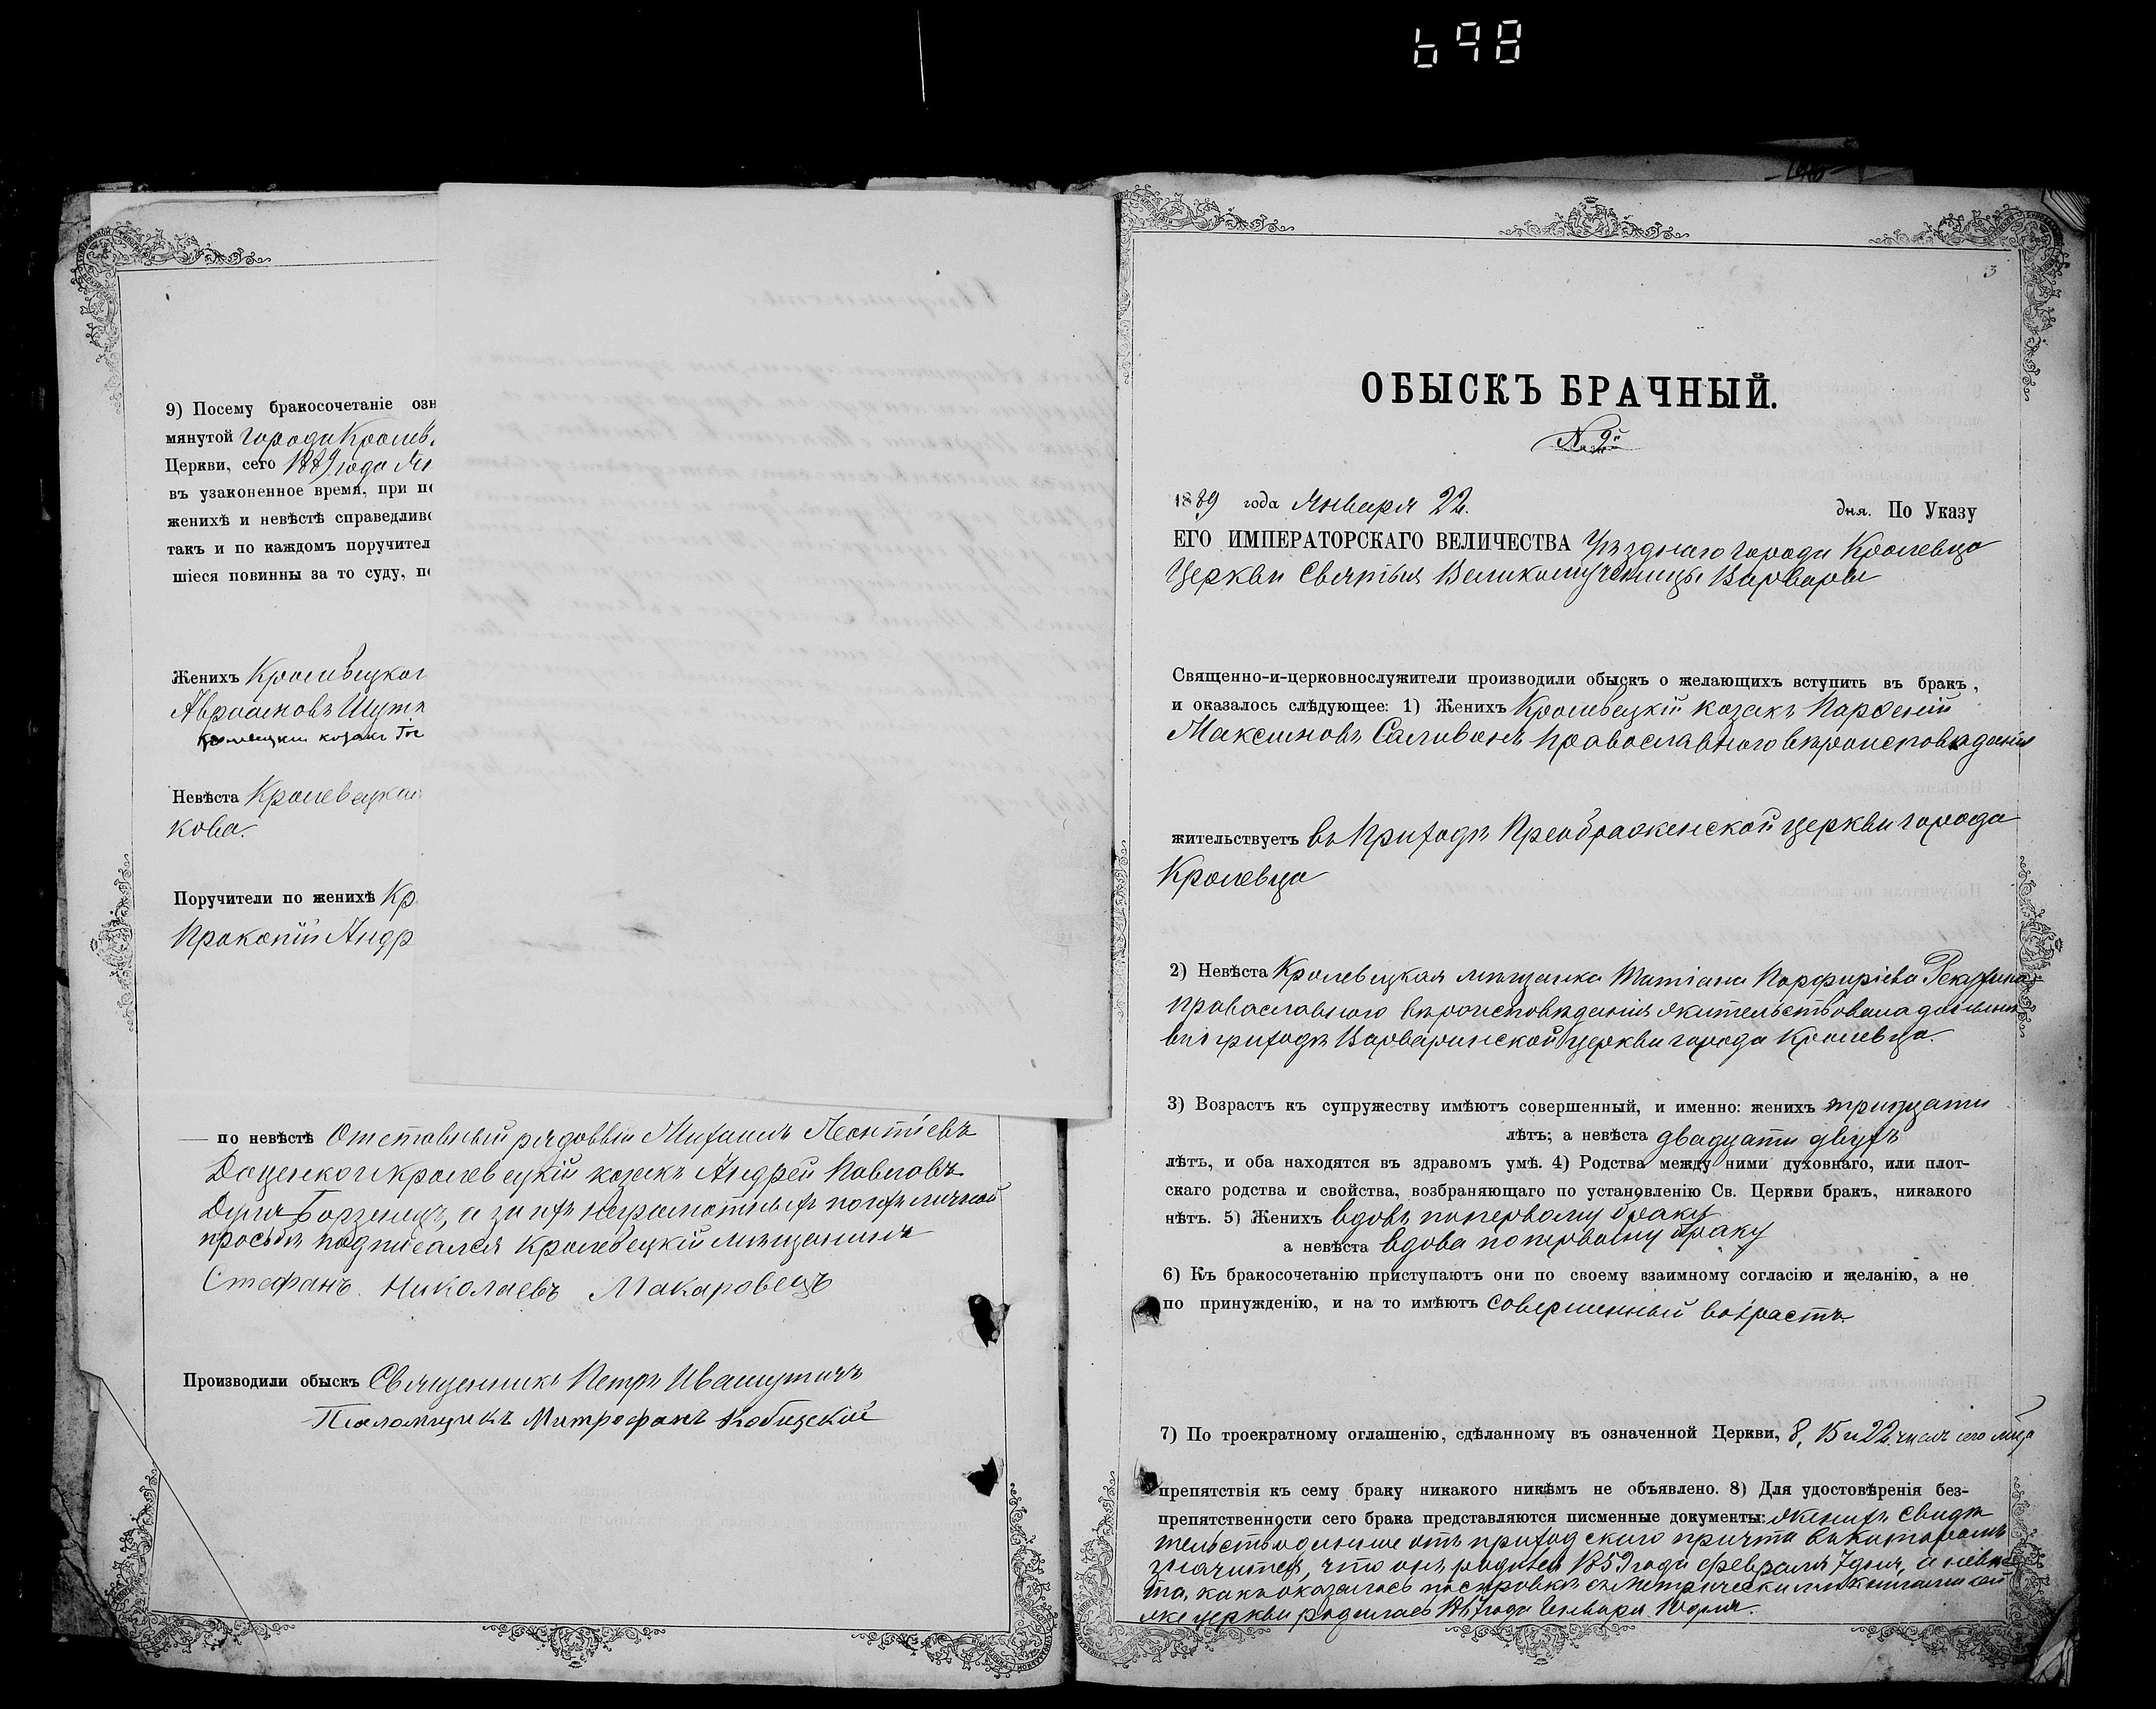 698
9) Посему бракосочетаніе озн
мянутой города Кролев
Церкви, сего 1889 года Ян
въ узаконенное время, при по
женихѣ и невѣстѣ справедливо
такъ и по каждомъ поручител
шіеся повинны за то суду, по
Женихъ Кролевецког
Авраамовъ Шут
козакъ
Невѣста Кролевецкая
кова.
Поручители по женихѣ Кр
Прокопій Андр
по невѣстѣ Отставный рядовый Михаилъ Леонтіевъ
Доценко и Кролевецкій козакъ Андрей Павловъ
Дуля Борзенецъ, а за ихъ неграмотныхъ по ихъ личной
просьбѣ подписался Кролевецкій мѣщанинъ
Стефанъ Николаевъ Макаровецъ
Производили обыскъ Священникъ Петръ Ивашутичъ
Псаломщикъ Митрофанъ
3
ОБЫСКЪ БРАЧНЫЙ.
№ 2й
1889 года Января 22. дня. По Указу
ЕГО ИМПЕРАТОРСКАГО ВЕЛИЧЕСТВА Уѣзднаго города Кролевца
Церкви Святыя Великомученицы Варвары
Священно-и-церковнослужители производили обыскъ о желающихъ вступить въ бракъ,
и оказалось слѣдующее: 1) Женихъ Кролевецкій козакъ Парѳеній
Максимовъ Саливонъ православнаго вѣроисповѣданія
жительствуетъ въ приходѣ Преображенской церкви города
Кролевца
2) Невѣста Кролевецкая мѣщанка Татіана Порфиріева
православнаго вѣроисповѣданія жительствовала донынѣ
въ приходѣ Варваринской церкви города Кролевца.
3) Возрастъ къ супружеству имѣютъ совершенный, и именно: женихъ тридцати
лѣтъ; а невѣста двадцати двухъ
лѣтъ, и оба находятся въ здравомъ умѣ. 4) Родства между ними духовнаго, или плот-
скаго родства и свойства, возбраняющаго по установленію Св. Церкви бракъ, никакого
нѣтъ. 5) Женихъ вдовъ по первому браку
а невѣста вдова по первому браку
6) Къ бракосочетанію приступаютъ они по своему взаимному согласію и желанію, а не
по принужденію, и на то имѣютъ совершенный возрастъ.
7) По троекратному оглашенію, сдѣланному въ означенной Церкви, 8, 15 и 22 числъ сего мѣсяца
препятствія къ сему браку никакого никѣмъ не объявлено. 8) Для удостовѣренія без-
препятственности сего брака представляются писменные документы: жениху свидѣ
тельство данное отъ приходскаго причта въ которомъ
значится, что онъ родился 1859 года февраля 7 дня, а невѣс
та, какъ оказалось по справкѣ съ метрическими книгами сей
же церкви родилась года Января 10 дня.